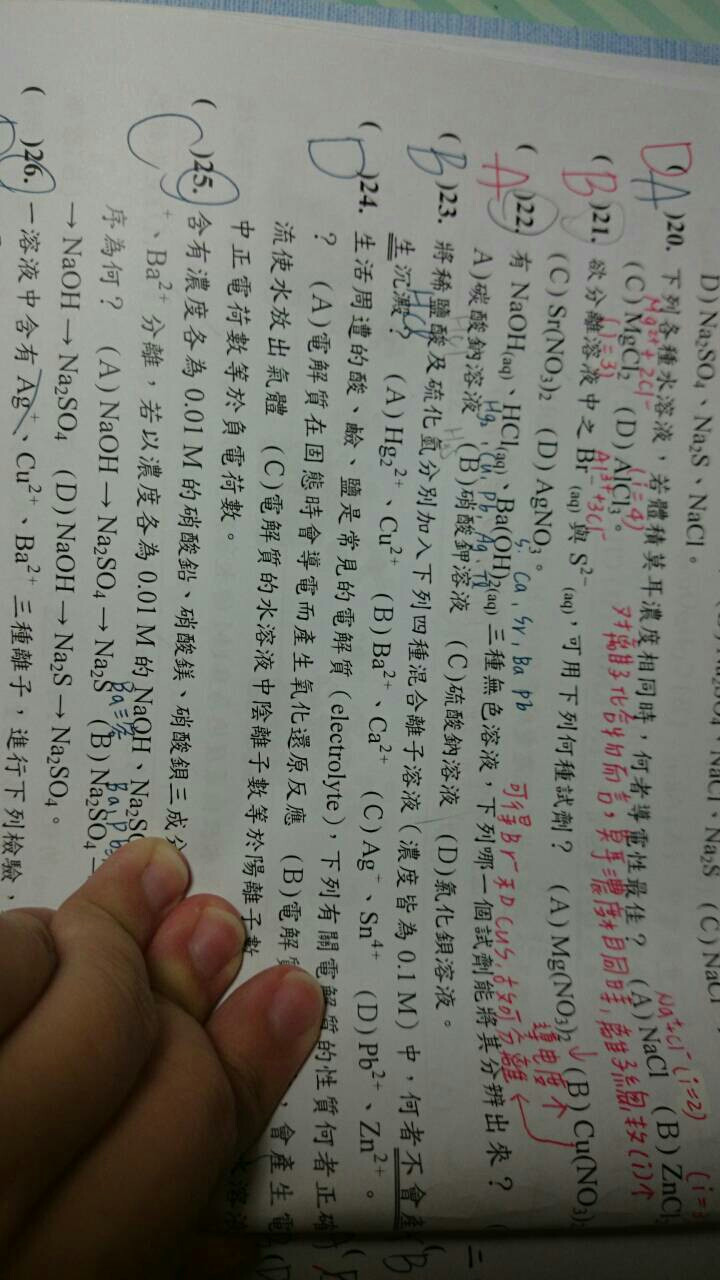 D) Na₂SO₄、Na₂S、NaCl。
NaCl、Na₂S (C) NaCl
DA )20. 下列各種水溶液，若體積莫耳濃度相同時，何者導電性最佳？ (A) NaCl (B) ZnCl
Na⁺+Cl⁻ (i=2)
(C) MgCl₂ (D) AlCl₃。
Mg²⁺+2Cl⁻ (i=3)
(i=4) Al³⁺+3Cl⁻
對離子化合物而言，莫耳濃度相同時，離子總數(i)↑
導電度↑
( B )21. 欲分離溶液中之 Br⁻(aq) 與 S²⁻(aq)，可用下列何種試劑？ (A) Mg(NO₃)₂ (B) Cu(NO₃)₂
(C) Sr(NO₃)₂ (D) AgNO₃。
可得Br⁻和CuS，故可分離
( A )22. 有 NaOH(aq)、HCl(aq)、Ba(OH)₂(aq) 三種無色溶液，下列哪一個試劑能將其分辨出來？ (
A)碳酸鈉溶液 (B)硝酸鉀溶液 (C)硫酸鈉溶液 (D)氯化鋇溶液。
Ca, Sr, Ba Pb
Hg, Cu, Pb, Ag,
( B )23. 將稀鹽酸及硫化氫分別加入下列四種混合離子溶液（濃度皆為 0.1 M）中，何者不會產
生沉澱？ (A) Hg₂²⁺、Cu²⁺ (B) Ba²⁺、Ca²⁺ (C) Ag⁺、Sn⁴⁺ (D) Pb²⁺、Zn²⁺。
( D )24. 生活周遭的酸、鹼、鹽是常見的電解質（electrolyte），下列有關電解質的性質何者正確
？ (A)電解質在固態時會導電而產生氧化還原反應 (B)電解 ，會產生電
流使水放出氣體 (C)電解質的水溶液中陰離子數等於陽離子數
中正電荷數等於負電荷數。
( C )25. 含有濃度各為 0.01 M 的硝酸鉛、硝酸鎂、硝酸鋇三成分
⁺、Ba²⁺ 分離，若以濃度各為 0.01 M 的 NaOH、Na₂SO
Ba Pb
序為何？ (A) NaOH → Na₂SO₄ → Na₂S (B) Na₂SO₄
→ NaOH → Na₂SO₄ (D) NaOH → Na₂S → Na₂SO₄。
( )26. 一溶液中含有 Ag⁺、Cu²⁺、Ba²⁺ 三種離子，進行下列檢驗，